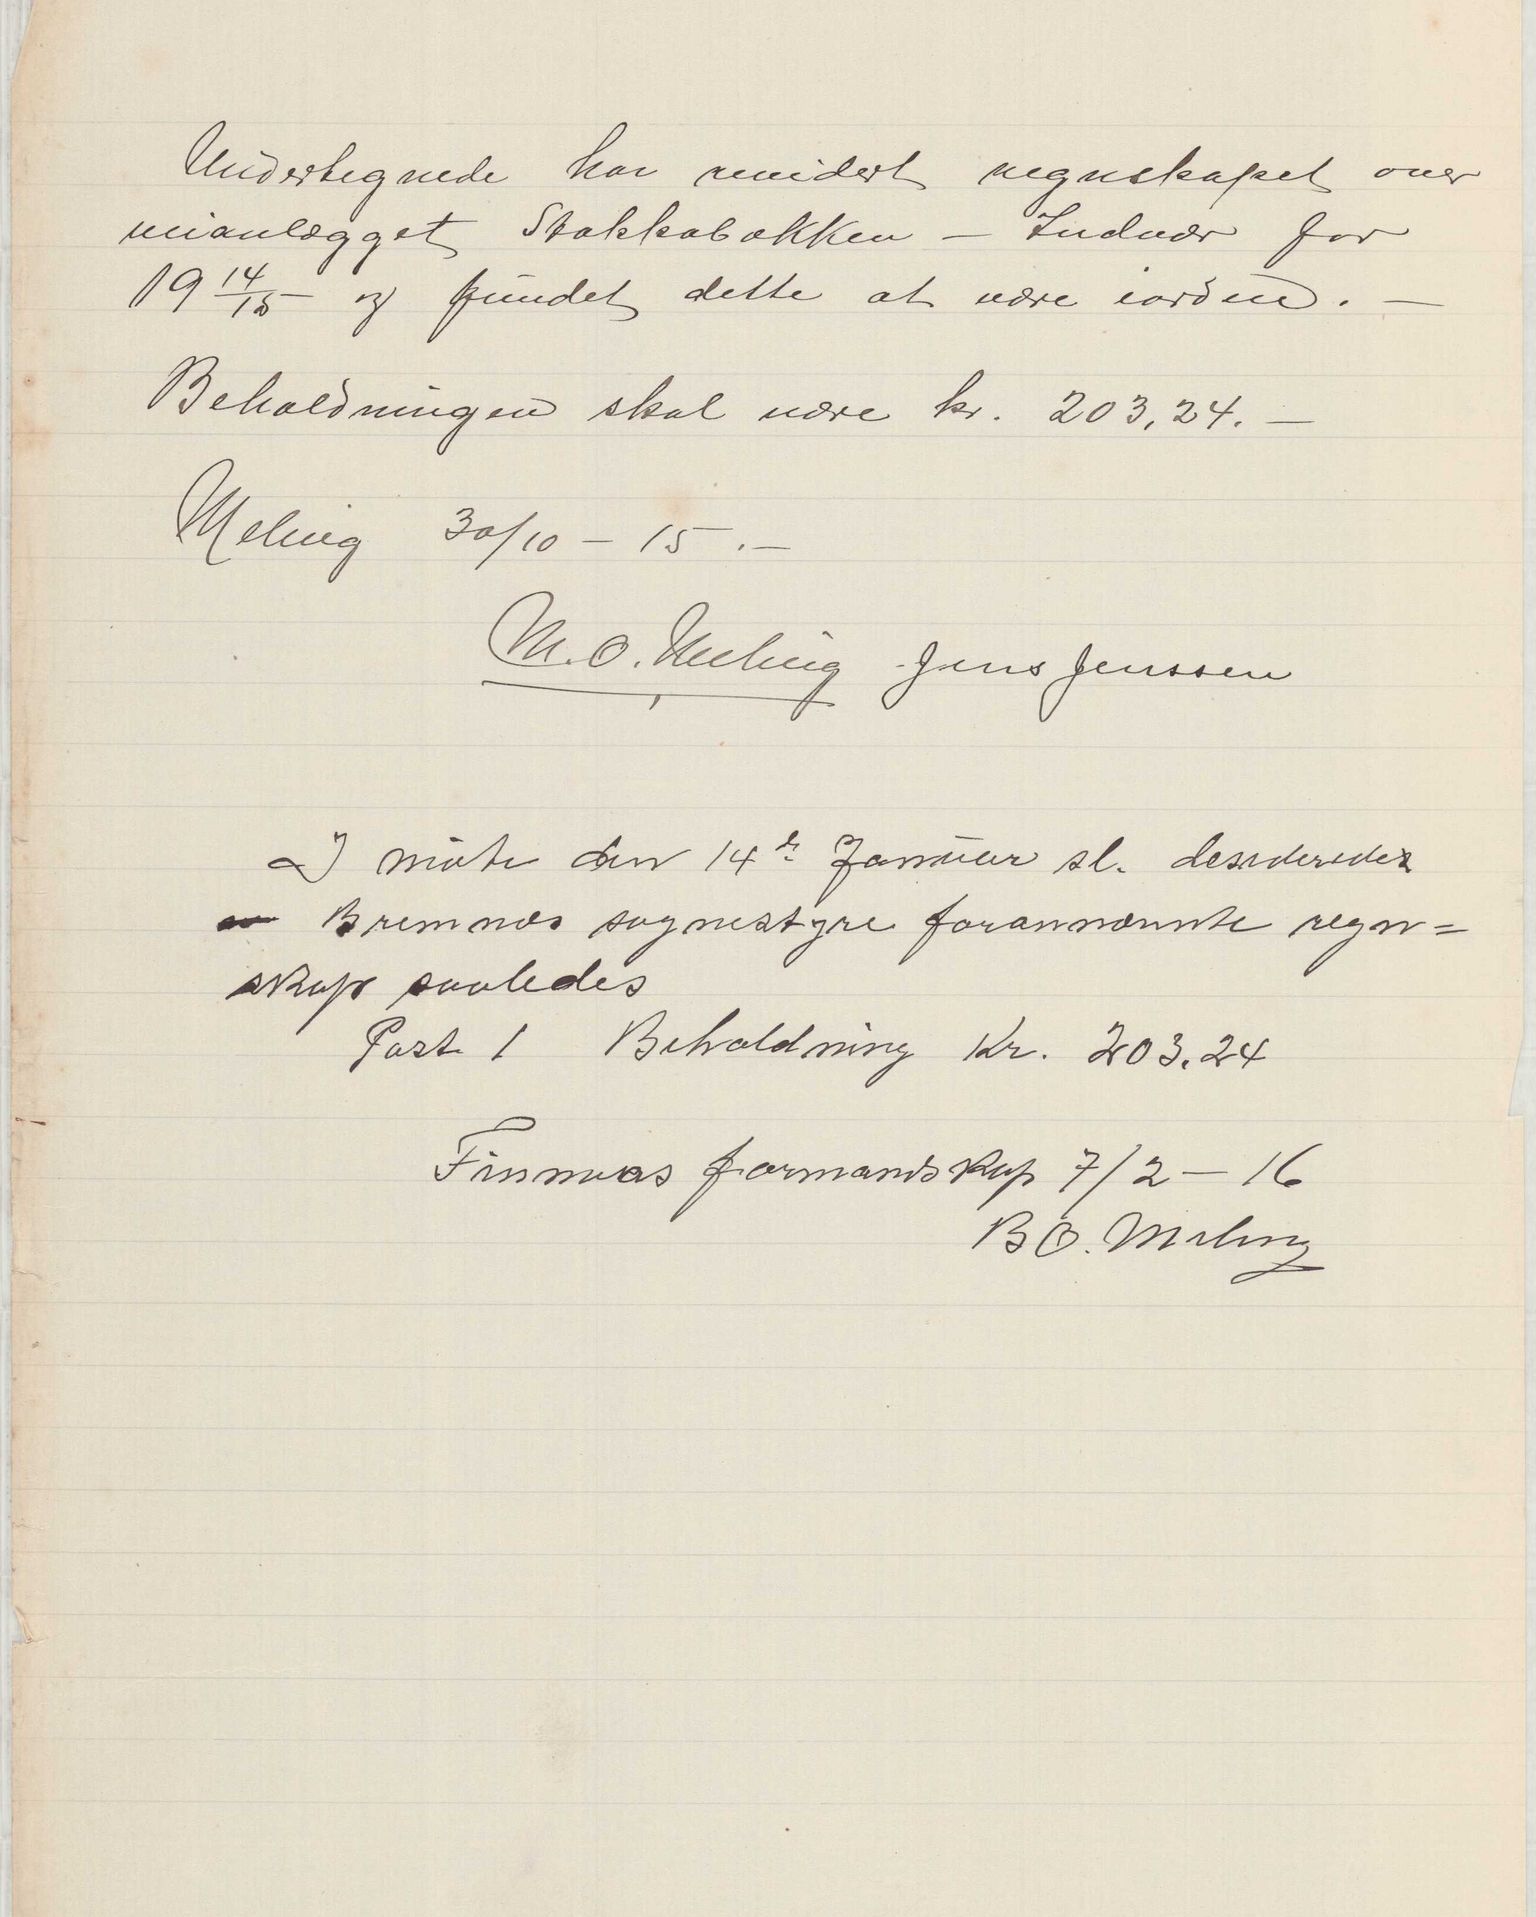 Undertegnede har revidert regnskapet over
veianlægget Stokkabækken – Indvær for
19 14/15 og fundet dette at være iorden. –
Beholdningen skal være kr. 203,24. –
Meling 30/10 – 15. –
M. O. Meling Jens Jenssen
I møte den 14de Januar sl. desiderедes
Bremnes sognestyre forannævnte regn=
skap saaledes
Post 1 Beholdning Kr. 203.24
Finnaas formandskap 7/2 – 16
B O. Meling